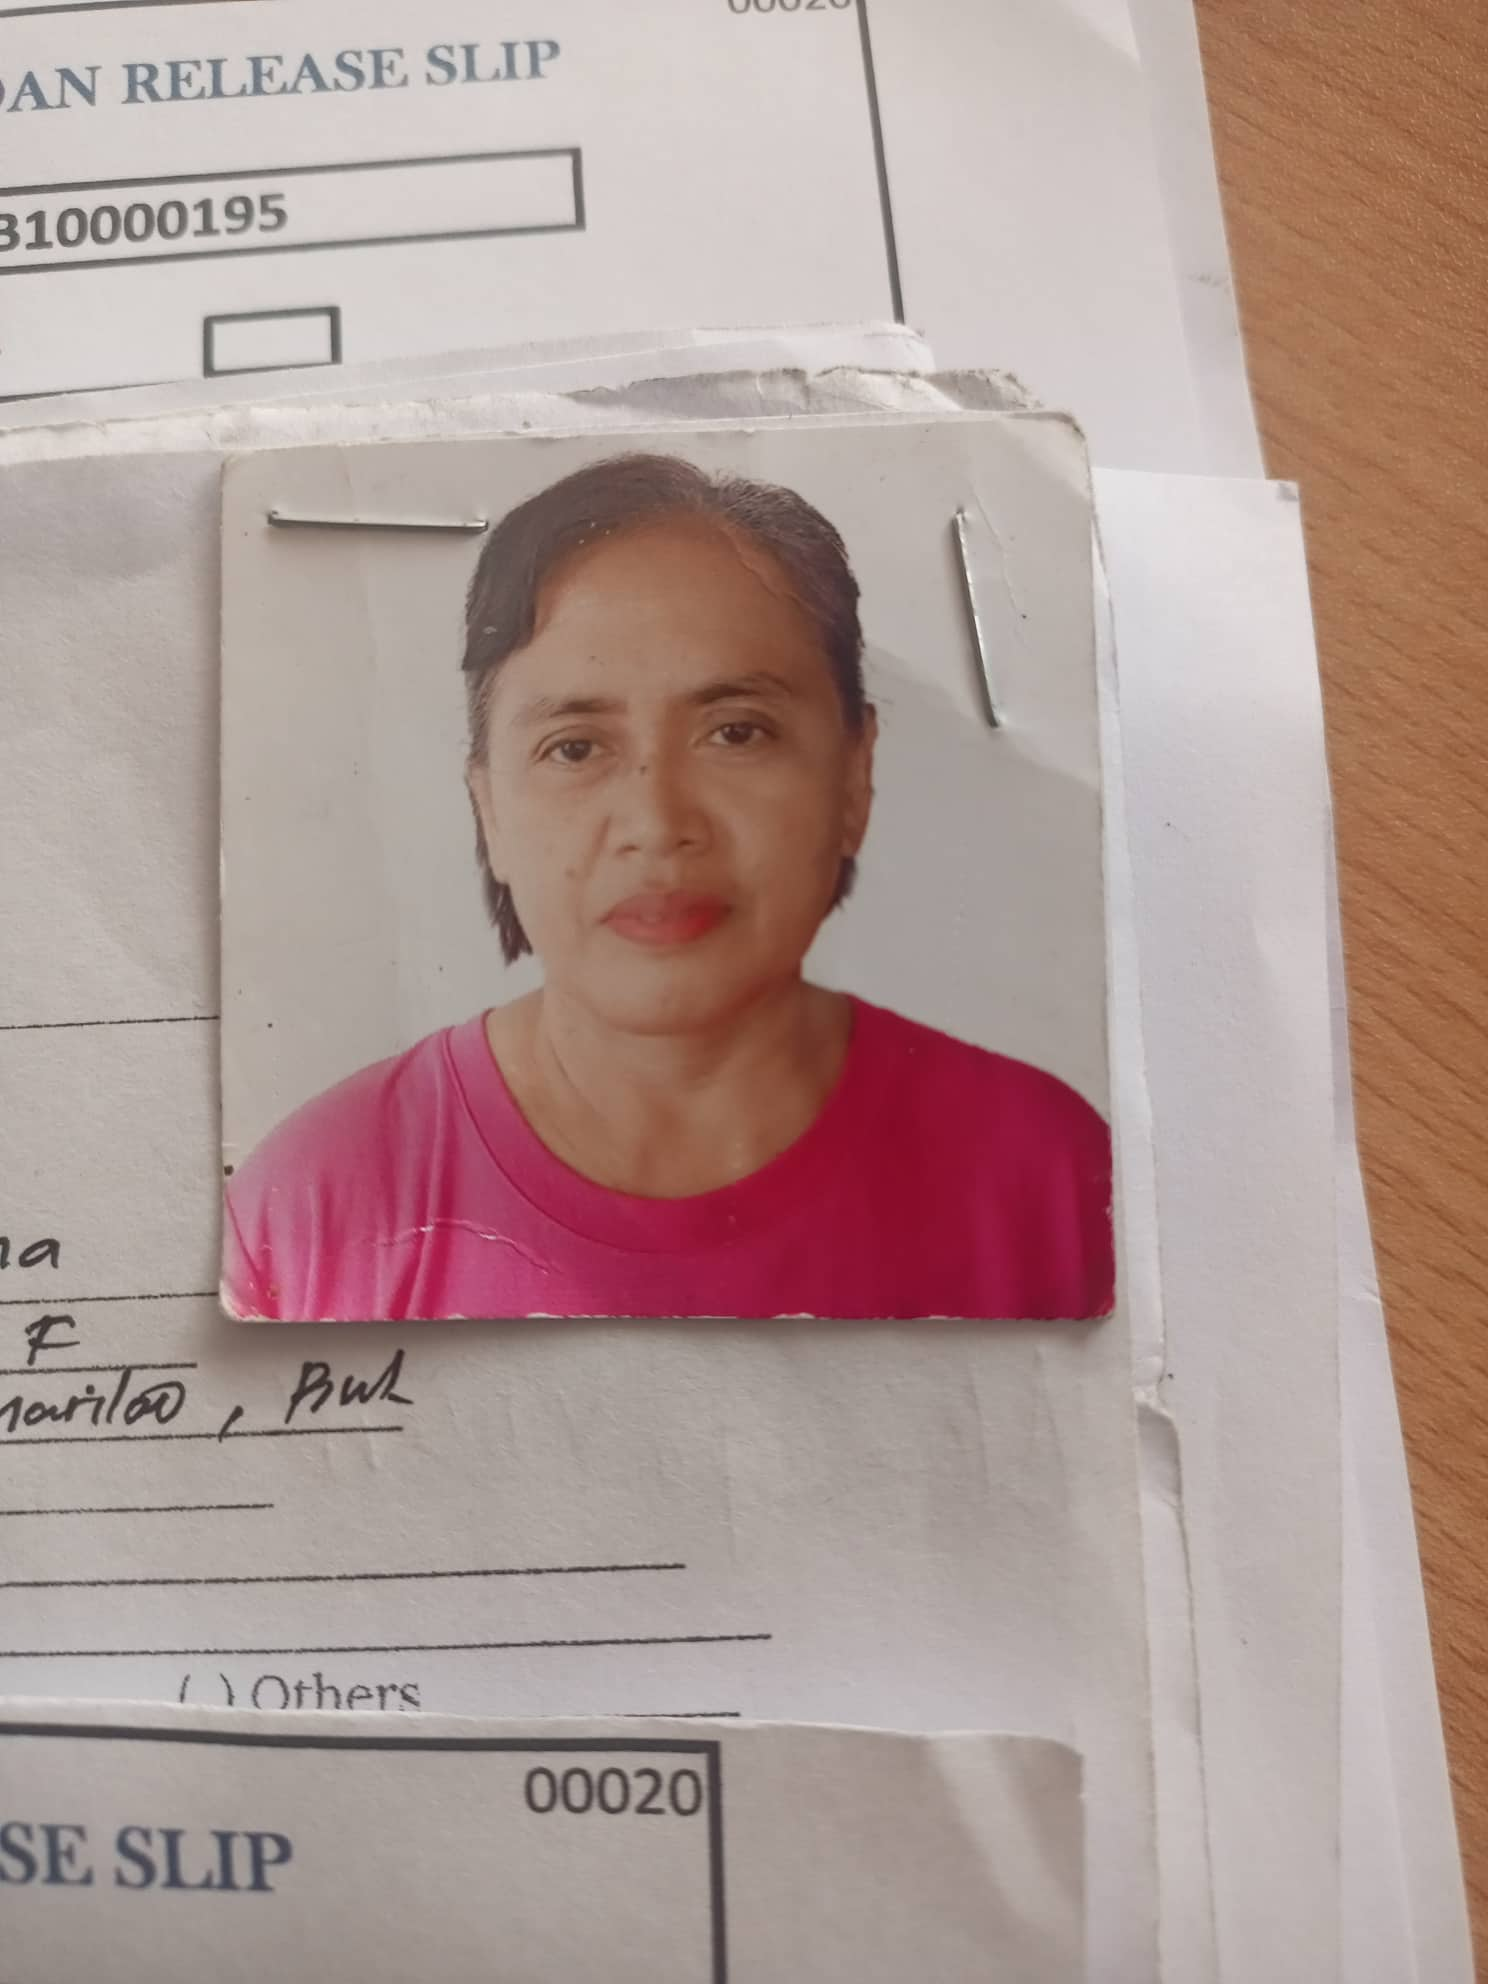 00020
OAN RELEASE SLIP
310000195
na
F
Marilao, Bul
( ) Others
00020
SE SLIP